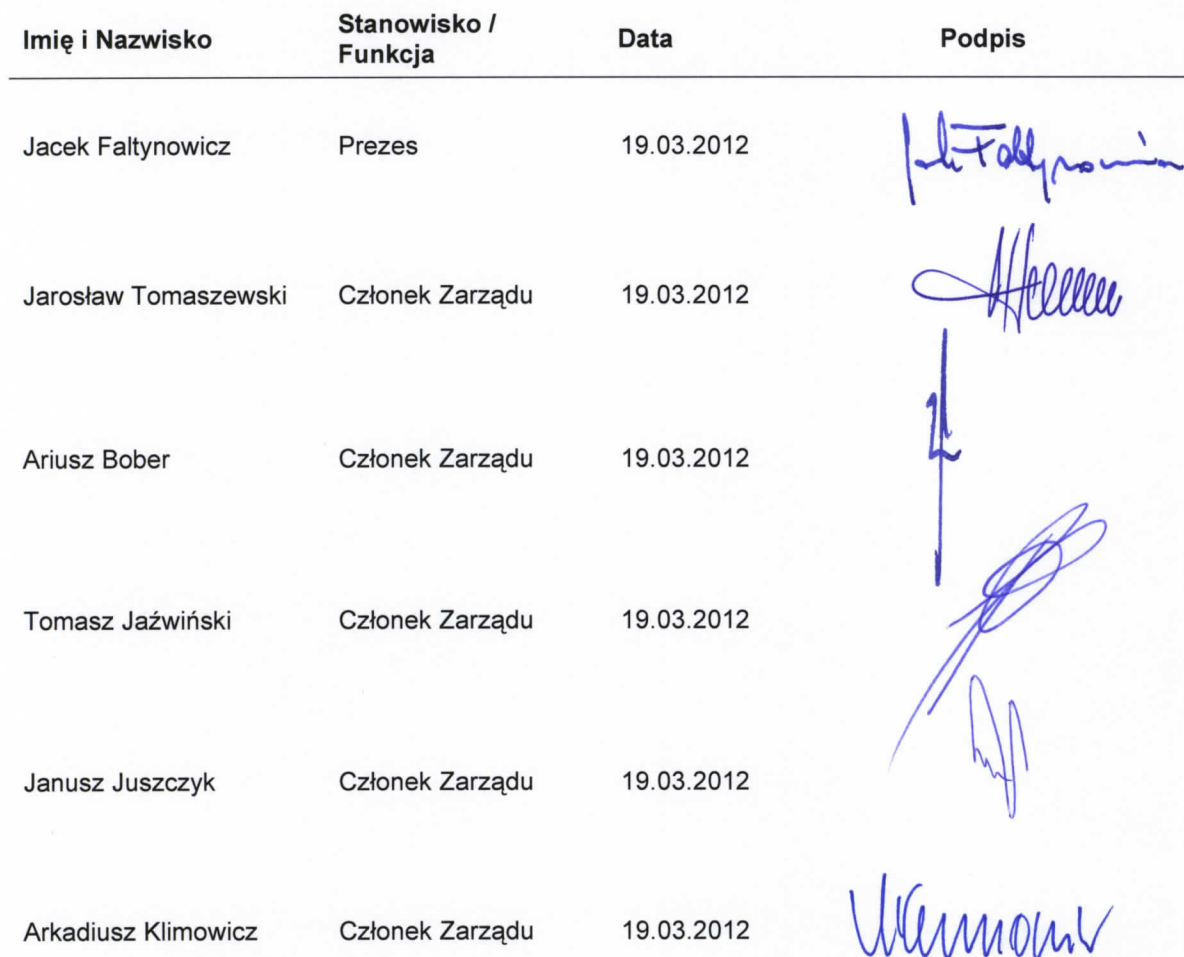 Imię i Nazwisko Stanowisko / Funkcja Data Podpis
Jacek Faltynowicz Prezes 19.03.2012
Jarosław Tomaszewski Członek Zarządu 19.03.2012
Ariusz Bober Członek Zarządu 19.03.2012
Tomasz Jaźwiński Członek Zarządu 19.03.2012
Janusz Juszczyk Członek Zarządu 19.03.2012
Arkadiusz Klimowicz Członek Zarządu 19.03.2012